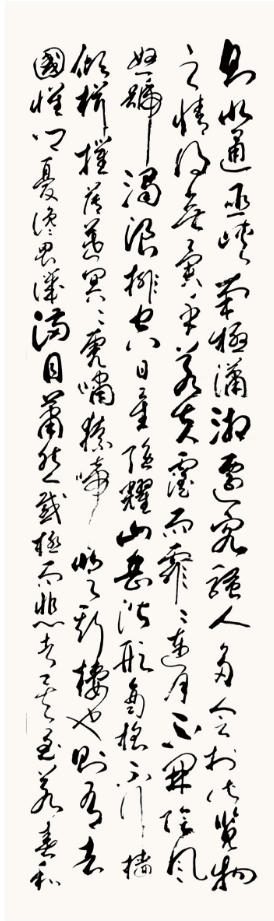 則北通巫峽南極瀟湘遷客騷人多會於此覽物
之情得無異乎若夫霪雨霏霏連月不開陰風
怒號濁浪排空日星隱耀山岳潛形商旅不行檣
傾楫摧薄暮冥冥虎嘯猿啼登斯樓也則有去
國懷鄉憂讒畏譏滿目蕭然感極而悲者矣至若春和